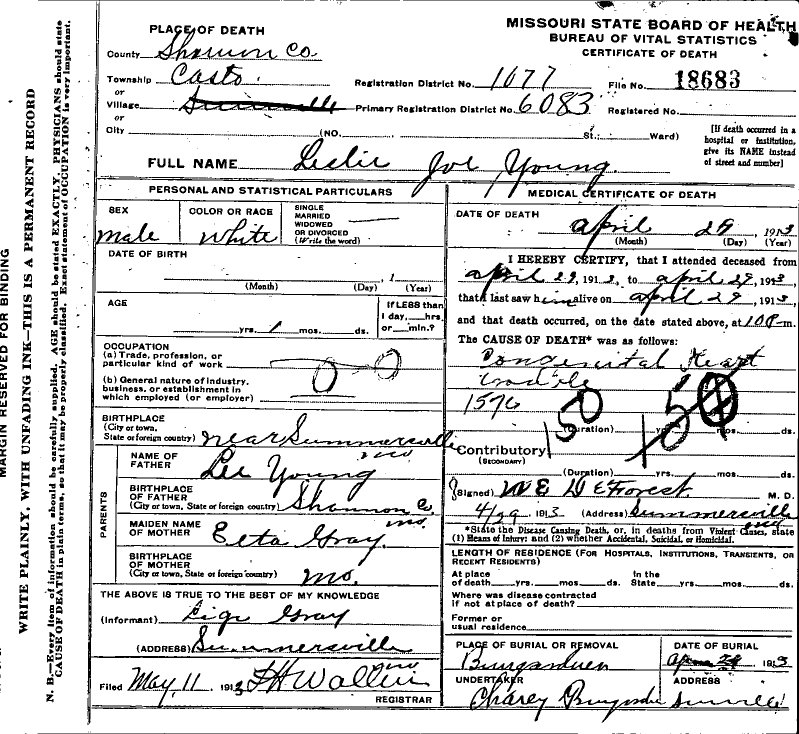 MISSOURI STATE BOARD OF HEALTH
BUREAU OF VITAL STATISTICS
CERTIFICATE OF DEATH
PLACE OF DEATH
County Shannon Co.
Township Casto.
or
Village
or
City (NO. St.; Ward)
Registration District No. 1077 File No. 18683
Primary Registration District No. 6083 Registered No.
[If death occurred in a
hospital or institution,
give its NAME instead
of street and number]
FULL NAME Leslie Joe Young.
PERSONAL AND STATISTICAL PARTICULARS
SEX
male
COLOR OR RACE
White
SINGLE
MARRIED
WIDOWED
OR DIVORCED
(Write the word)
DATE OF BIRTH
, 1
(Month) (Day) (Year)
AGE
yrs. 1 mos. ds.
If LESS than
1 day, hrs.
or min.?
OCCUPATION
(a) Trade, profession, or
particular kind of work 0
(b) General nature of industry,
business, or establishment in
which employed (or employer) 0
BIRTHPLACE
(City or town,
State or foreign country) near Summersville
mo
PARENTS
NAME OF
FATHER Lee Young
BIRTHPLACE
OF FATHER
(City or town, State or foreign country) Shannon Co.
mo.
MAIDEN NAME
OF MOTHER Etta Gray.
BIRTHPLACE
OF MOTHER
(City or town, State or foreign country) Mo.
THE ABOVE IS TRUE TO THE BEST OF MY KNOWLEDGE
(Informant) Gray
(ADDRESS) Summersville
mo
Filed May 11 1913
REGISTRAR
MEDICAL CERTIFICATE OF DEATH
DATE OF DEATH
April 29, 1913
(Month) (Day) (Year)
I HEREBY CERTIFY, that I attended deceased from
April 29, 1913, to April 29, 1913,
that I last saw him alive on April 29, 1913,
and that death occurred, on the date stated above, at m.
The CAUSE OF DEATH* was as follows:
Congenital Heart
trouble
150
(Duration) yrs. mos. ds.
Contributory
(SECONDARY)
(Duration) yrs. mos. ds.
(Signed) W E DeForest M. D.
4/29 1913 (Address) Summersville
mo
*State the Disease Causing Death, or, in deaths from Violent Causes, state
(1) Means of Injury; and (2) whether Accidental, Suicidal, or Homicidal.
LENGTH OF RESIDENCE (FOR HOSPITALS, INSTITUTIONS, TRANSIENTS, OR
RECENT RESIDENTS)
At place
of death yrs. mos. ds.
In the
State yrs. mos. ds.
Where was disease contracted
if not at place of death?
Former or
usual residence
PLACE OF BURIAL OR REMOVAL
DATE OF BURIAL
1913
UNDERTAKER
ADDRESS
MARGIN RESERVED FOR BINDING
WRITE PLAINLY, WITH UNFADING INK—THIS IS A PERMANENT RECORD
N. B.—Every item of information should be carefully supplied. AGE should be stated EXACTLY. PHYSICIANS should state
CAUSE OF DEATH in plain terms, so that it may be properly classified. Exact statement of OCCUPATION is very important.